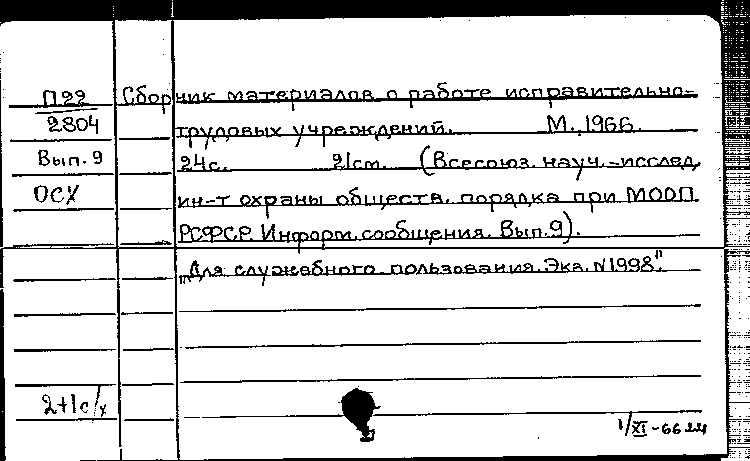 П22 Сборник материалов о работе исправительно-
2804 трудовых учреждений. М., 1966.
Вып. 9 24с. 21см. (Всесоюз. науч.-исслед.
ОСХ ин-т охраны обществ. порядка при МООП
РСФСР. Информ. сообщения. Вып. 9).
"Для служебного пользования. Экз. N1998".
2+1с/х
1/XI-66